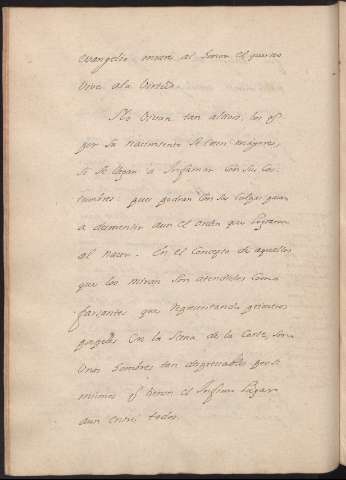 evangelio muera al honor el que no
vive a la virtud.
No vivan tan altivos, los q^e
por su nacimiento se creen mayores,
si se llegan a Infamar con sus cos-
tumbres: pues podran con sus culpas
a desmentir aun el orden que lograron
al nacer. En el Concepto de aquellos
que los miran son atendidos como
farsante que representando primeros
papeles en la Scena de la Corte, son
unos hombres tan despreciables por si
mismos q^e tienen el Infimo lugar
aun entre todos.